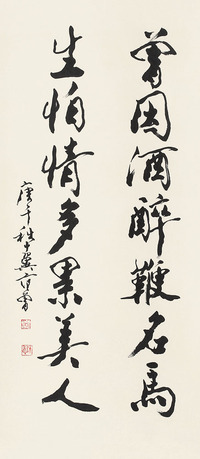 曾因酒醉鞭名馬
生怕情多累美人
庚午秋十翼范曾